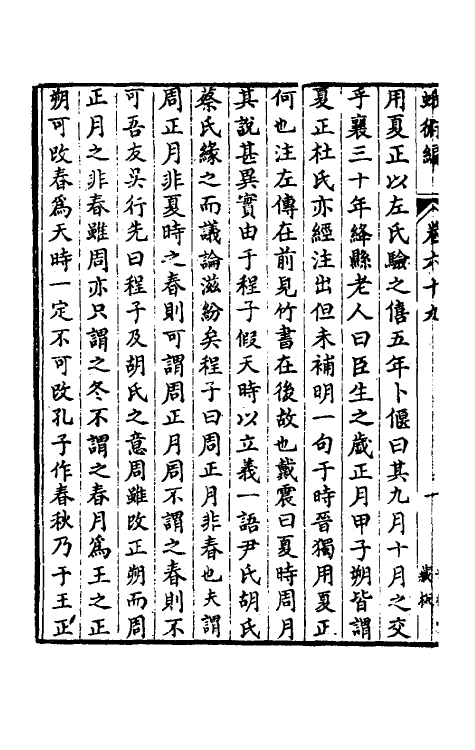 蛾術編 卷六十九 一
用夏正以左氏驗之僖五年卜偃曰其九月十月之交
乎襄三十年絳縣老人曰臣生之歲正月甲子朔皆謂
夏正杜氏亦經注出但未補明一句于時晉獨用夏正
何也注左傳在前見竹書在後故也戴震曰夏時周月
其說甚異實由于程子假天時以立義一語尹氏胡氏
蔡氏緣之而議論滋紛矣程子曰周正月非春也夫謂
周正月非夏時之春則可謂周正月周不謂之春則不
可吾友吳行先曰程子及胡氏之意周雖改正朔而周
正月之非春雖周亦只謂之冬不謂之春月為王之正
朔可改春為天時一定不可改孔子作春秋乃于王正